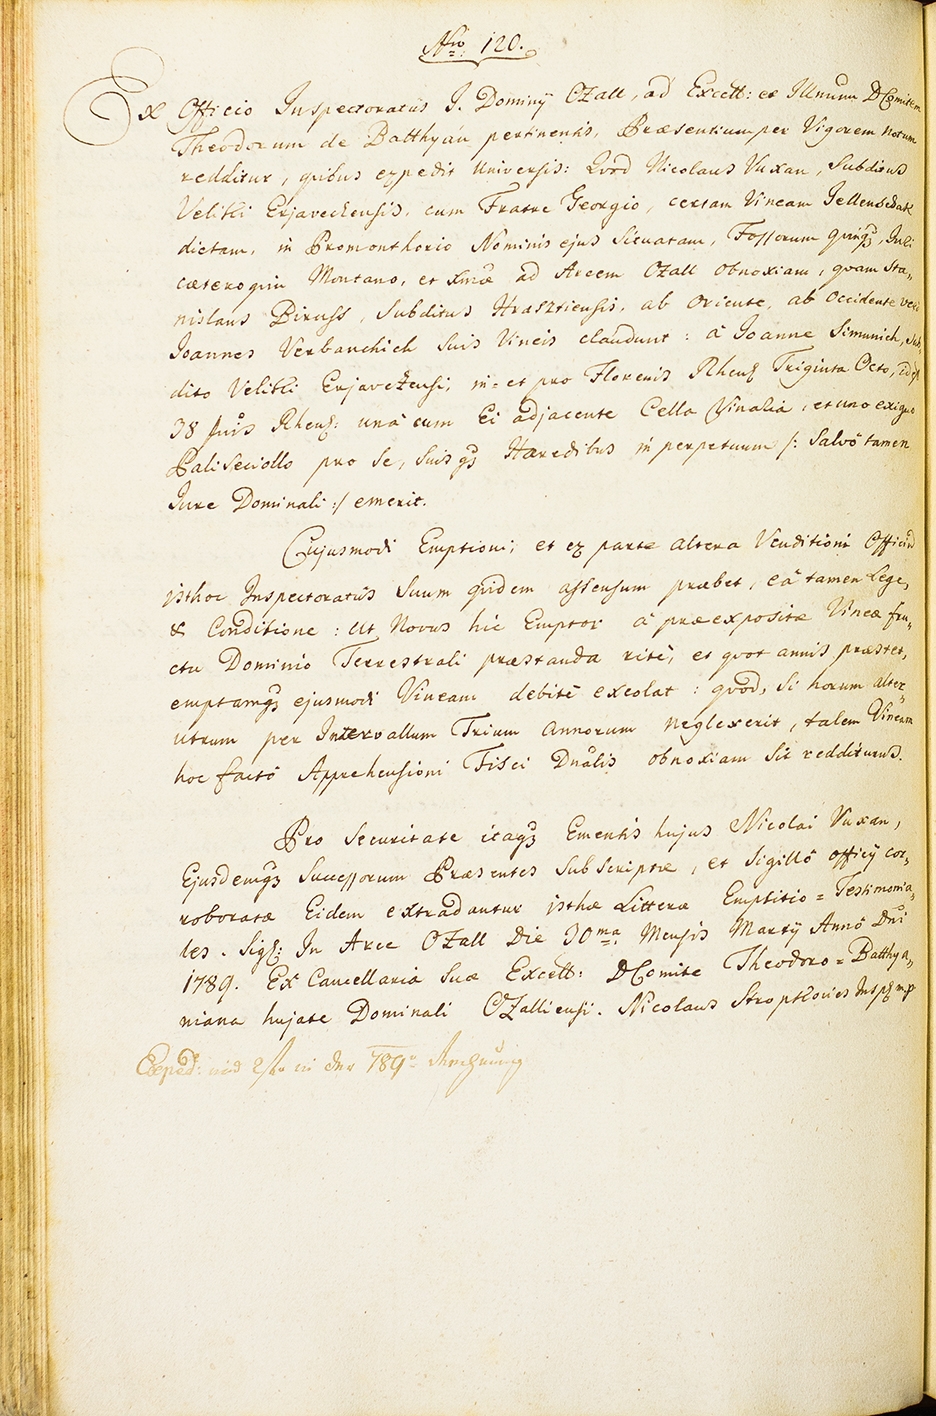 Nro: 120.
Ex Officio Inspectoratûs I. Dominÿ OZall, ad Excell: et Illmum D Comitem
Theodorum de Batthyán pertinentis, Præsentium per Vigorem notum
redditur, quibus expedit Universis: Quod Nicolaus Vuxan, Subditus
Veliki Erjavechensis, cum Fratre Georgio, certam Vineam Jellenschak
dictam, in Promonthorio Nominis ejus Situatam, Fossorum quinq3,
cæteroquin Montano, et Xmæ ad Arcem OZall obnoxiam, quam Sta„
nislaus Biruss, Subditus Hrasztiensis, ab oriente, ab occidente vero
Joannes Verbanchich Suis Vineis claudunt: à Joanne Simunich, Sub„
dito Veliki Erjavechensi, in= et pro Florenis Rhens. Triginta Octo, id est
38 Rhens: unà cum Ei adjacente Cella Vinalia, et uno exiguo
Paliseciollo pro Se, Suisq3 Hæredibus in perpetuum /: Salvô tamen
Jure Dominali :/ emerit.
Cujusmodi Emptioni, et ex parte altera Venditioni Officium
isthoc Inspectoratûs Suum quidem assensum præbet, eâ tamen Lege,
& Conditione: Ut Novus hic Emptor à præexpositæ Vineæ fru„
ctu Dominio Terrestrali præstanda ritè, et quot annis præstet,
emptamq3 ejusmodi Vineam debitè excolat: quôd, Si horum alter„
utrum per Intervallum Trium Annorum neglexerit, talem Vineam
hoc facto Apprehensioni Fisci Dnâlis obnoxiam Sit redditurus.
Pro Securitate itaq3 Ementis hujus Nicolai Vuxan,
Ejusdemq3 Successorum Præsentes Subscriptæ, et Sigillô officÿ cor„
roboratæ Eidem extradantur isthæ Litteræ Emptitio= Testimonia„
les. Sigl: In Arce OZall Die 30ma Mensis Martÿ Annô Dni
1789. Ex Cancellaria Suæ Excell: D Comite Theodoro= Batthya„
niana hujate Dominali OZalliensi. Nicolaus Insp. mp
Exped: in der 789